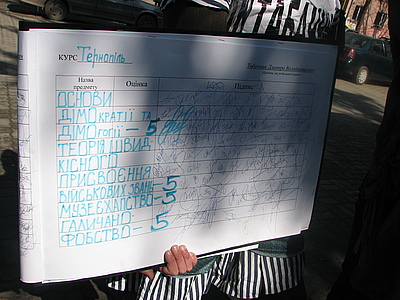 КУРС Тернопіль
Назва предмету Оцінка Підпис
ОСНОВИ
ДІМОкратії та
ДІМОгогії – 5
ТЕОРІЯ ШВИД
КІСНОГО
ПРИСВОЄННЯ
ВІЙСЬКОВИХ ЗВАНЬ – 5
МУЗЕЄХАПСТВО – 5
ГАЛИЧАНО-
ФОБСТВО – 5